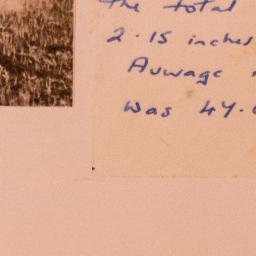 the total
2.15 inches
Average
was 47.